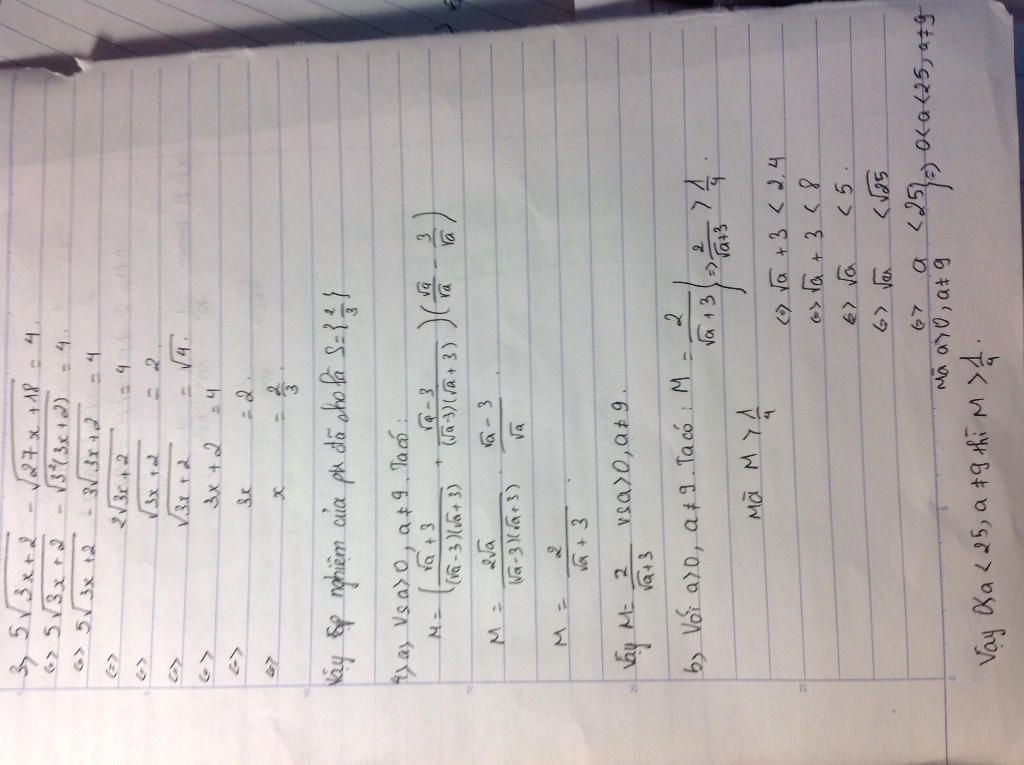 3, 5√(3x+2) - √(27x+18) = 4.
<=> 5√(3x+2) - √(3²(3x+2)) = 4.
<=> 5√(3x+2) - 3√(3x+2) = 4
<=> 2√(3x+2) = 4
<=> √(3x+2) = 2.
<=> √(3x+2) = √4.
<=> 3x+2 = 4
<=> 3x = 2.
<=> x = 2/3.
Vậy nghiệm của pt đã cho là S={2/3}
2, a, Vs a>0, a≠9. Ta có:
M = ( (√a+3)/((√a-3)(√a+3)) + (√a-3)/((√a-3)(√a+3)) ) ( √a/√a - 3/√a )
M = 2√a/((√a-3)(√a+3)) . (√a-3)/√a .
M = 2/(√a+3) .
Vậy M = 2/(√a+3) vs a>0, a≠9.
b, Với a>0, a≠9. Ta có: M = 2/(√a+3) } => 2/(√a+3) > 1/4.
Mà M > 1/4
<=> √a+3 < 2.4
<=> √a+3 < 8
<=> √a < 5.
<=> √a < √25
<=> a < 25 } => 0<a<25, a≠9
Mà a>0, a≠9
Vậy 0<a<25, a≠9 thì M > 1/4.